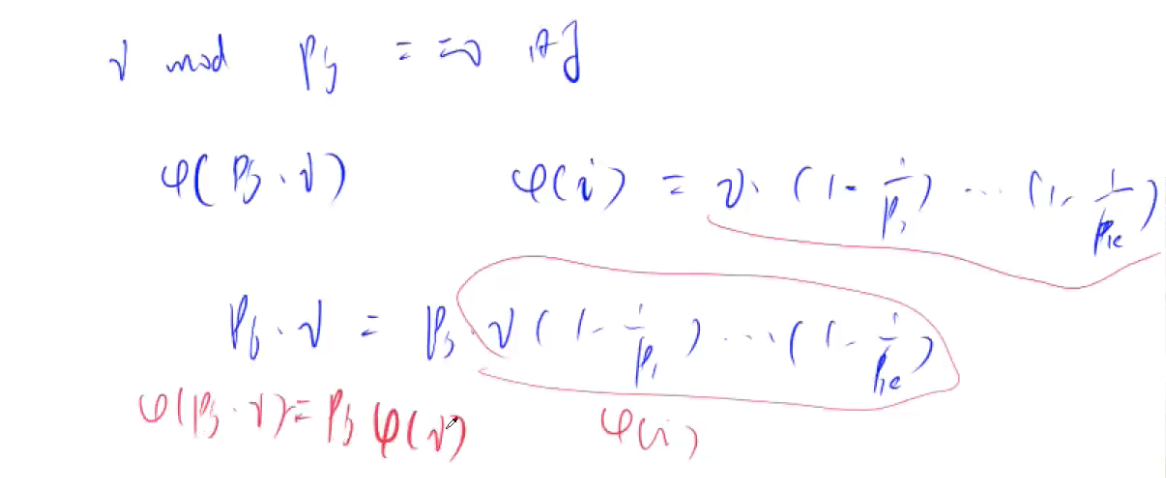 i mod pj == 0 时
φ(pj·i) φ(i) = i·(1-1/p1)...(1-1/pk)
pj·i = pj·i(1-1/p1)...(1-1/pk)
φ(pj·i)=pj φ(i) φ(i)